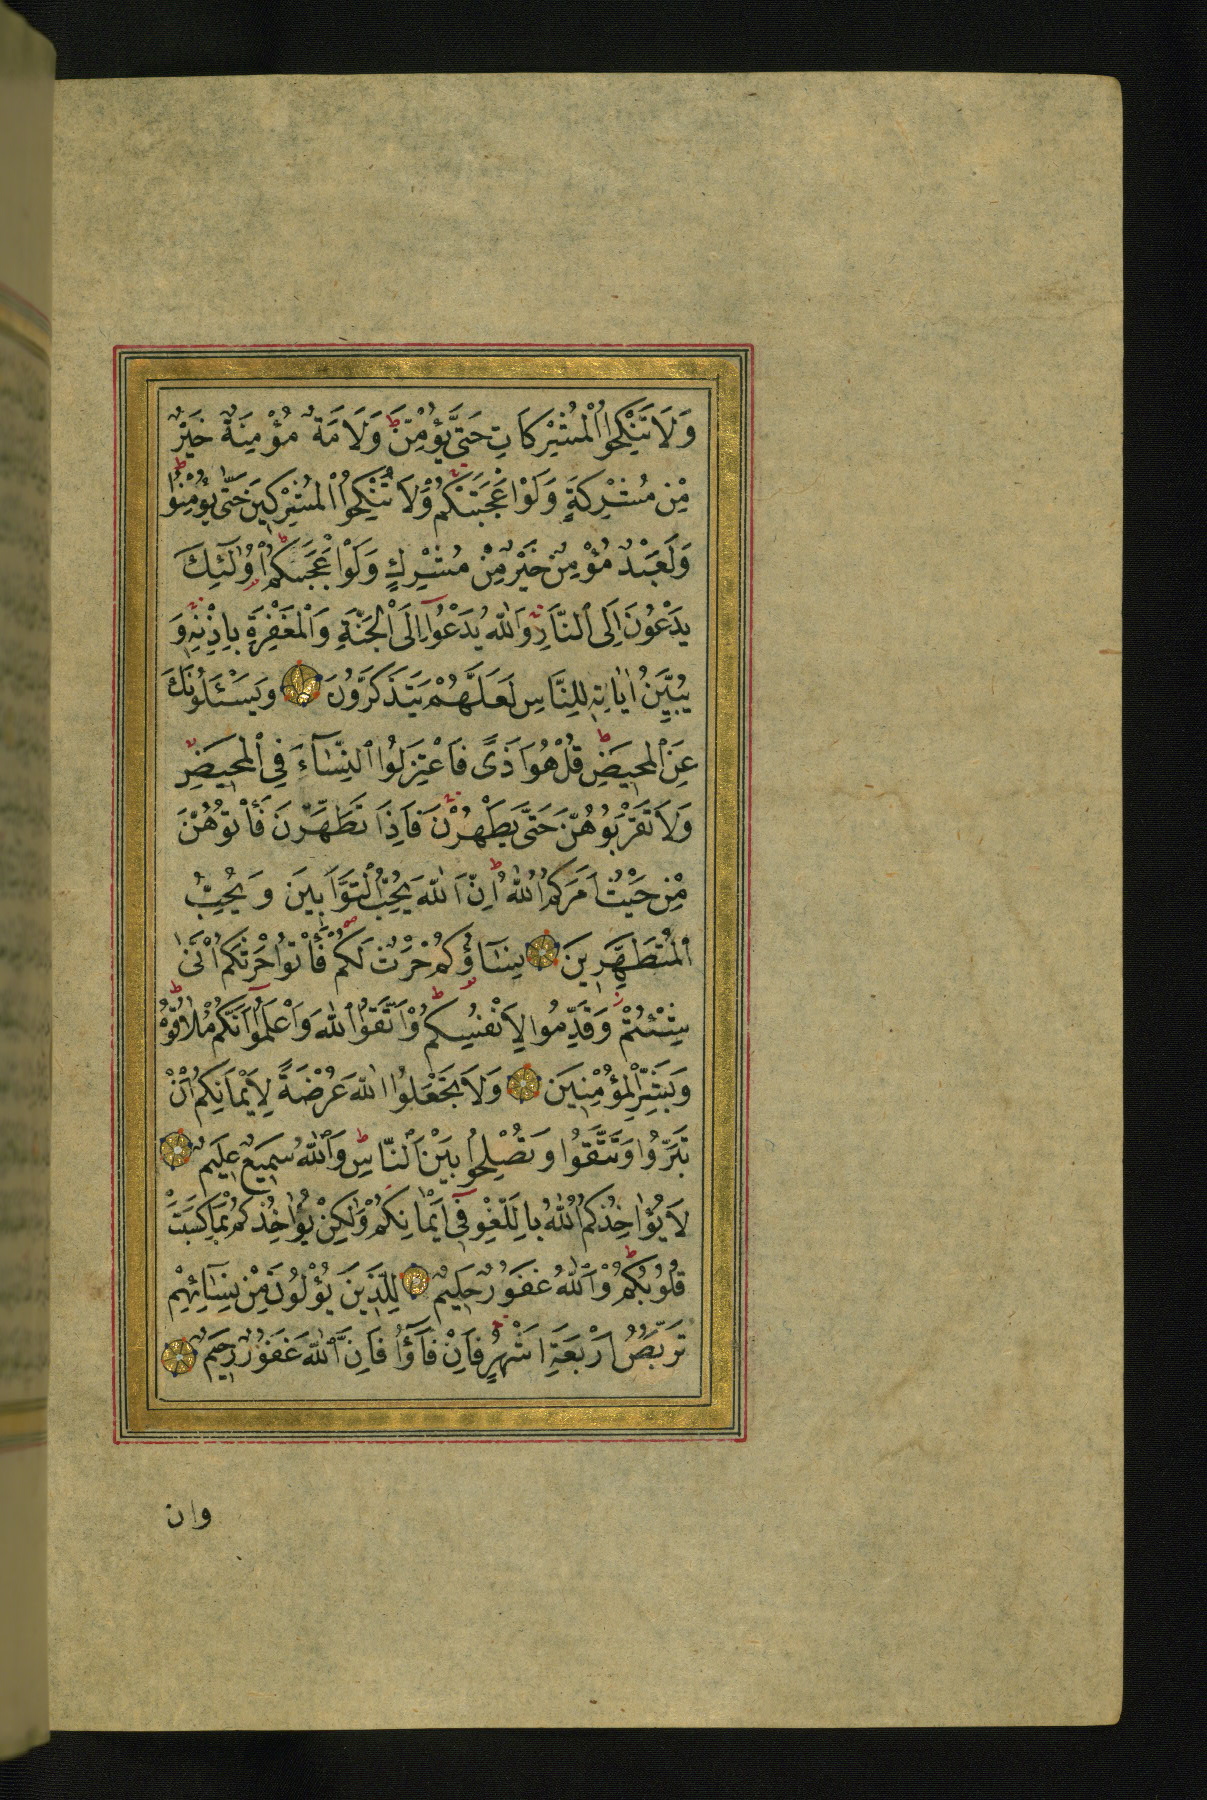 وَلَا تَنْكِحُوا الْمُشْرِكَاتِ حَتَّى يُؤْمِنَّ ط وَلَاَمَةٌ مُؤْمِنَةٌ خَيْرٌ
مِنْ مُشْرِكَةٍ وَلَوْ اَعْجَبَتْكُمْ وَلَا تُنْكِحُوا الْمُشْرِكِينَ حَتَّى يُؤْمِنُوا ط
وَلَعَبْدٌ مُؤْمِنٌ خَيْرٌ مِنْ مُشْرِكٍ وَلَوْ اَعْجَبَكُمْ ط اُولٰئِكَ
يَدْعُونَ اِلَى النَّارِ وَاللّٰهُ يَدْعُوا اِلَى الْجَنَّةِ وَالْمَغْفِرَةِ بِاِذْنِهِ وَ
يُبَيِّنُ اٰيَاتِهِ لِلنَّاسِ لَعَلَّهُمْ يَتَذَكَّرُونَ وَيَسْـَٔلُونَكَ
عَنِ الْمَحِيضِ ط قُلْ هُوَ اَذًى فَاعْتَزِلُوا النِّسَاءَ فِي الْمَحِيضِ
وَلَا تَقْرَبُوهُنَّ حَتَّى يَطْهُرْنَ فَاِذَا تَطَهَّرْنَ فَأْتُوهُنَّ
مِنْ حَيْثُ اَمَرَكُمُ اللّٰهُ ط اِنَّ اللّٰهَ يُحِبُّ التَّوَّابِينَ وَيُحِبُّ
الْمُتَطَهِّرِينَ نِسَاؤُكُمْ حَرْثٌ لَكُمْ فَأْتُوا حَرْثَكُمْ اَنّٰى
شِئْتُمْ وَقَدِّمُوا لِاَنْفُسِكُمْ ط وَاتَّقُوا اللّٰهَ وَاعْلَمُوا اَنَّكُمْ مُلَاقُوهُ ط
وَبَشِّرِ الْمُؤْمِنِينَ وَلَا تَجْعَلُوا اللّٰهَ عُرْضَةً لِاَيْمَانِكُمْ اَنْ
تَبَرُّوا وَتَتَّقُوا وَتُصْلِحُوا بَيْنَ النَّاسِ ط وَاللّٰهُ سَمِيعٌ عَلِيمٌ
لَا يُؤَاخِذُكُمُ اللّٰهُ بِاللَّغْوِ فِي اَيْمَانِكُمْ وَلٰكِنْ يُؤَاخِذُكُمْ بِمَا كَسَبَتْ
قُلُوبُكُمْ ط وَاللّٰهُ غَفُورٌ حَلِيمٌ لِلَّذِينَ يُؤْلُونَ مِنْ نِسَائِهِمْ
تَرَبُّصُ اَرْبَعَةِ اَشْهُرٍ فَاِنْ فَاؤُا فَاِنَّ اللّٰهَ غَفُورٌ رَحِيمٌ
وان